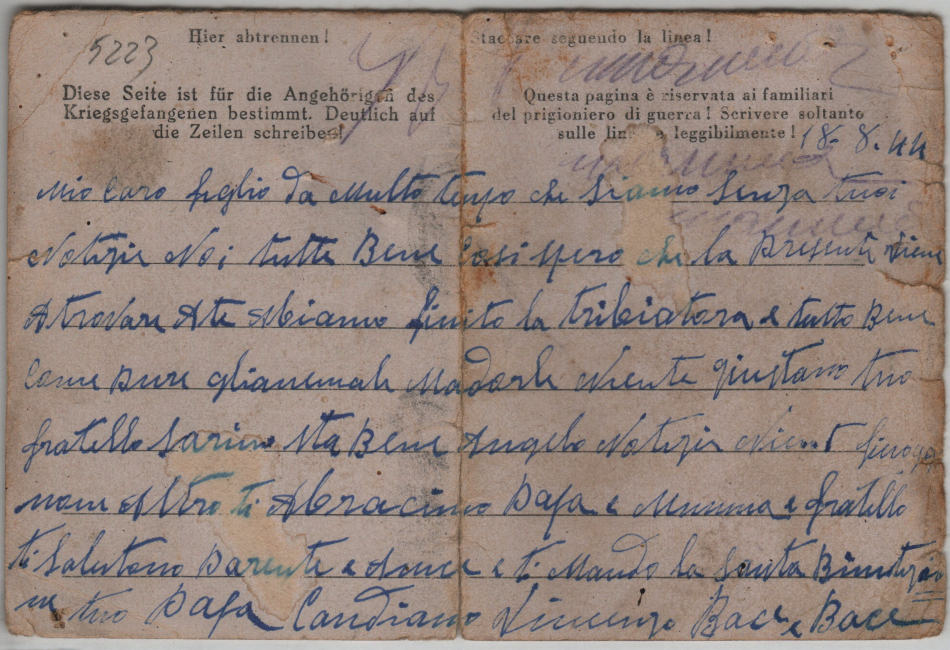 5223
Hier abtrennen!
Staccare seguendo la linea!
Diese Seite ist für die Angehörigen des
Kriegsgefangenen bestimmt. Deutlich auf
die Zeilen schreiben!
Questa pagina è riservata ai familiari
del prigioniero di guerra! Scrivere soltanto
sulle linee e leggibilmente!
18-8.44
Mio Caro figlio da Multo tempo che Siamo Senza tuoi
Notizie Noi tutte Bene Cosi spero che la Presente Viene
Atrovare Ate Abiamo finito la tribiatora e tutto Bene
Come Pure Niente giustano tuo
fratello Sarino Sta Bene Angelo Notizie Nient
Altro ti Abracimo Papa e Mumma e fratello
ti Salutano Parente e Amice e ti Mando la Santa
tuo Papa Candiano Vincenzo Bace e Bace